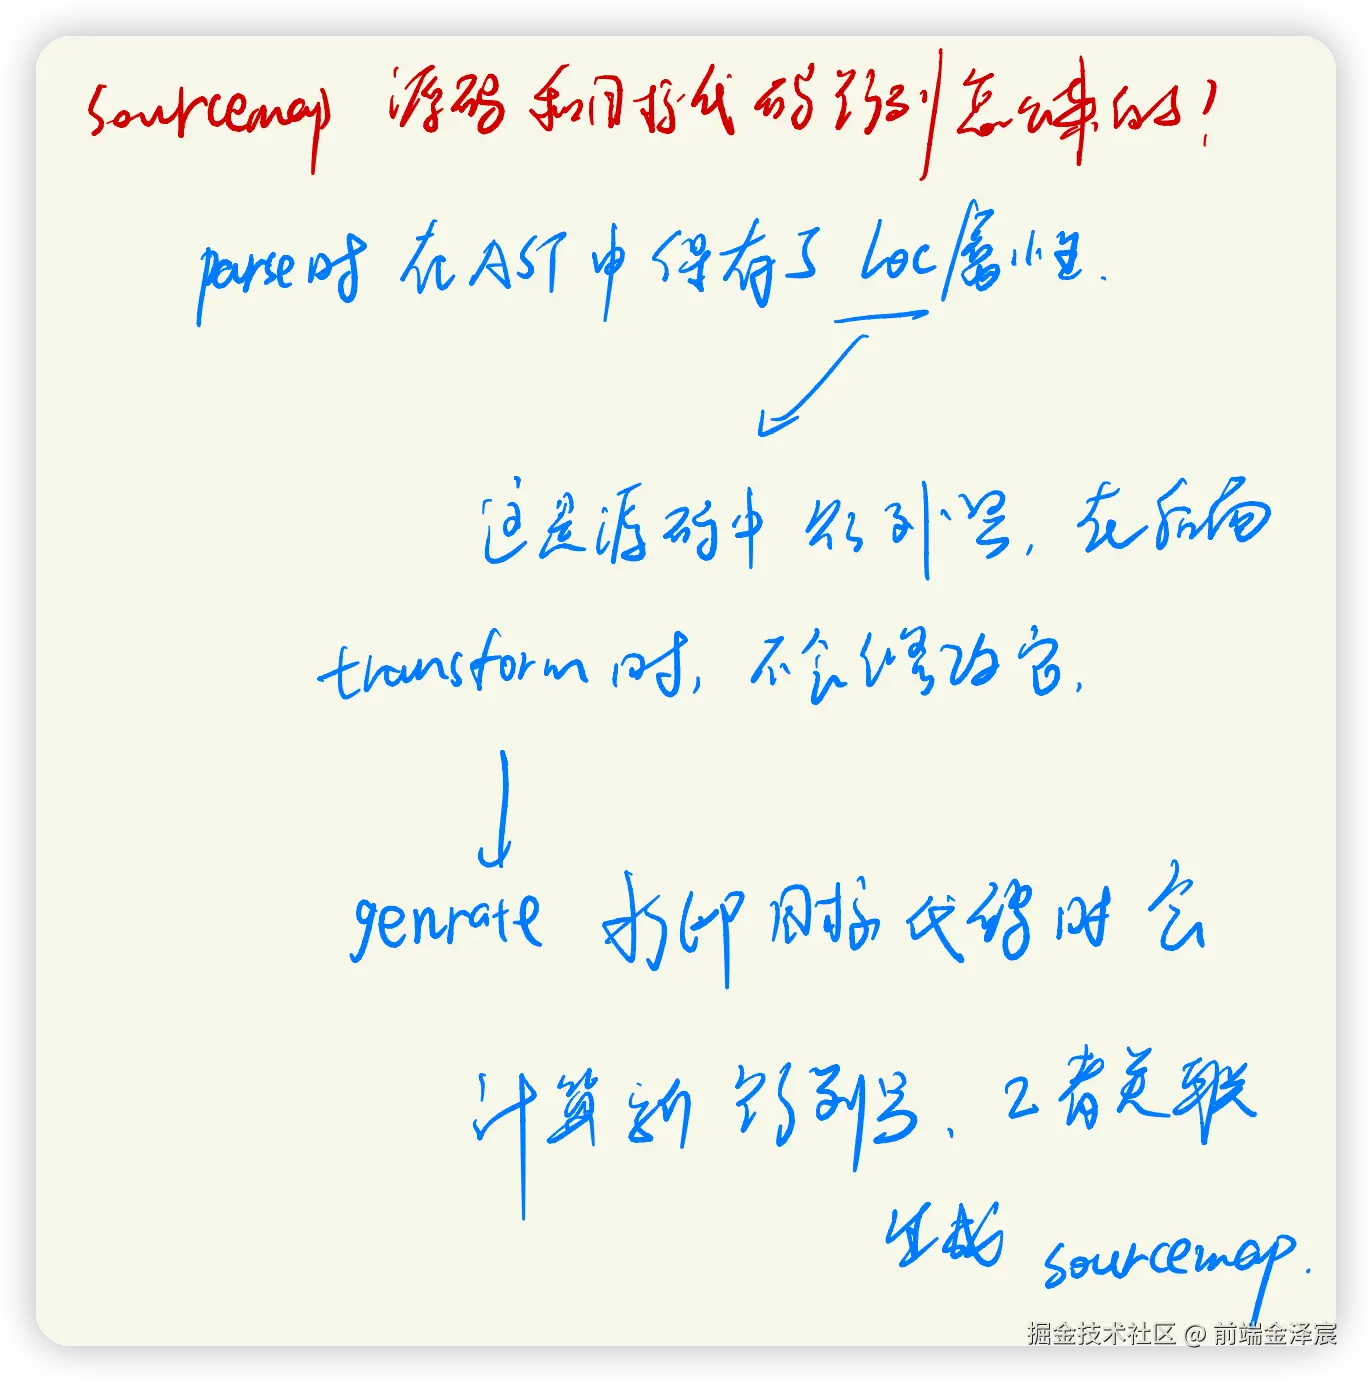 sourcemap 源码和目标代码行列怎么来的?
parse时 在AST中保存了 loc属性.
这是源码中行列号, 在后面
transform时, 不会修改它.
genrate 打印目标代码时会
计算新行列号, 2者关联
生成 sourcemap.
掘金技术社区 @ 前端金泽宸